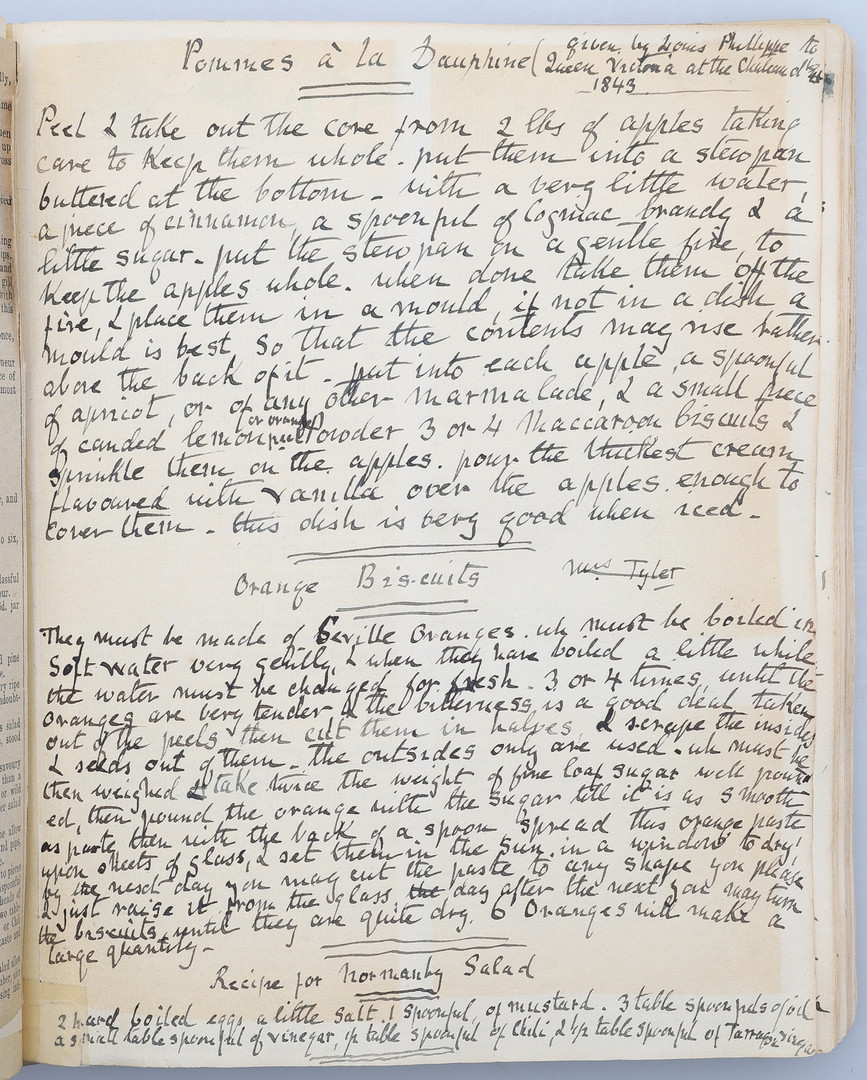 Pommes à la Dauphine (given by Louis Phillippe to
Queen Victoria at the Chateau d'
1843
Peel & take out the core from 2 lbs of apples taking
care to keep them whole. put them into a stewpan
buttered at the bottom - with a very little water,
a piece of cinnamon, a spoonful of Cogniac brandy & a
little sugar. put the stewpan on a gentle fire, to
keep the apples whole. when done take them off the
fire, & place them in a mould, if not in a dish a
mould is best, so that the contents may rise rather
above the back of it. put into each apple, a spoonful
of apricot, or of any other marmalade, & a small piece
of candied lemon (or orange) peel Powder 3 or 4 Maccaroon biscuits &
sprinkle them on the apples. pour the thickest cream
flavoured with vanilla over the apples. enough to
cover them - this dish is very good when iced -
Orange Biscuits Mrs Tyler
They must be made of Seville Oranges. wh must be boiled in
Soft water very gently, & when they have boiled a little while
the water must be changed for fresh. 3 or 4 times, until the
oranges are very tender & the bitterness is a good deal taken
out of the peels then cut them in halves, & scrape the insides
& seeds out of them - the outsides only are used - wh must be
then weighed & take twice the weight of fine loaf sugar well pound
ed, then pound the orange with the sugar till it is as smooth
as paste, then with the back of a spoon spread this orange paste
upon sheets of glass, & set them in the sun in a window to dry,
by the next day you may cut the paste to any shape you please
& just raise it from the glass the day after the next you may turn
the biscuits until they are quite dry. 6 Oranges will make a
large quantity -
Recipe for Normanby Salad
2 hard boiled eggs a little salt. 1 spoonful, of mustard. 3 table spoonfuls of oil
a small table spoonful of vinegar, 1/2 table spoonful of Chili, & 1/2 table spoonful of Tarragon vinegar